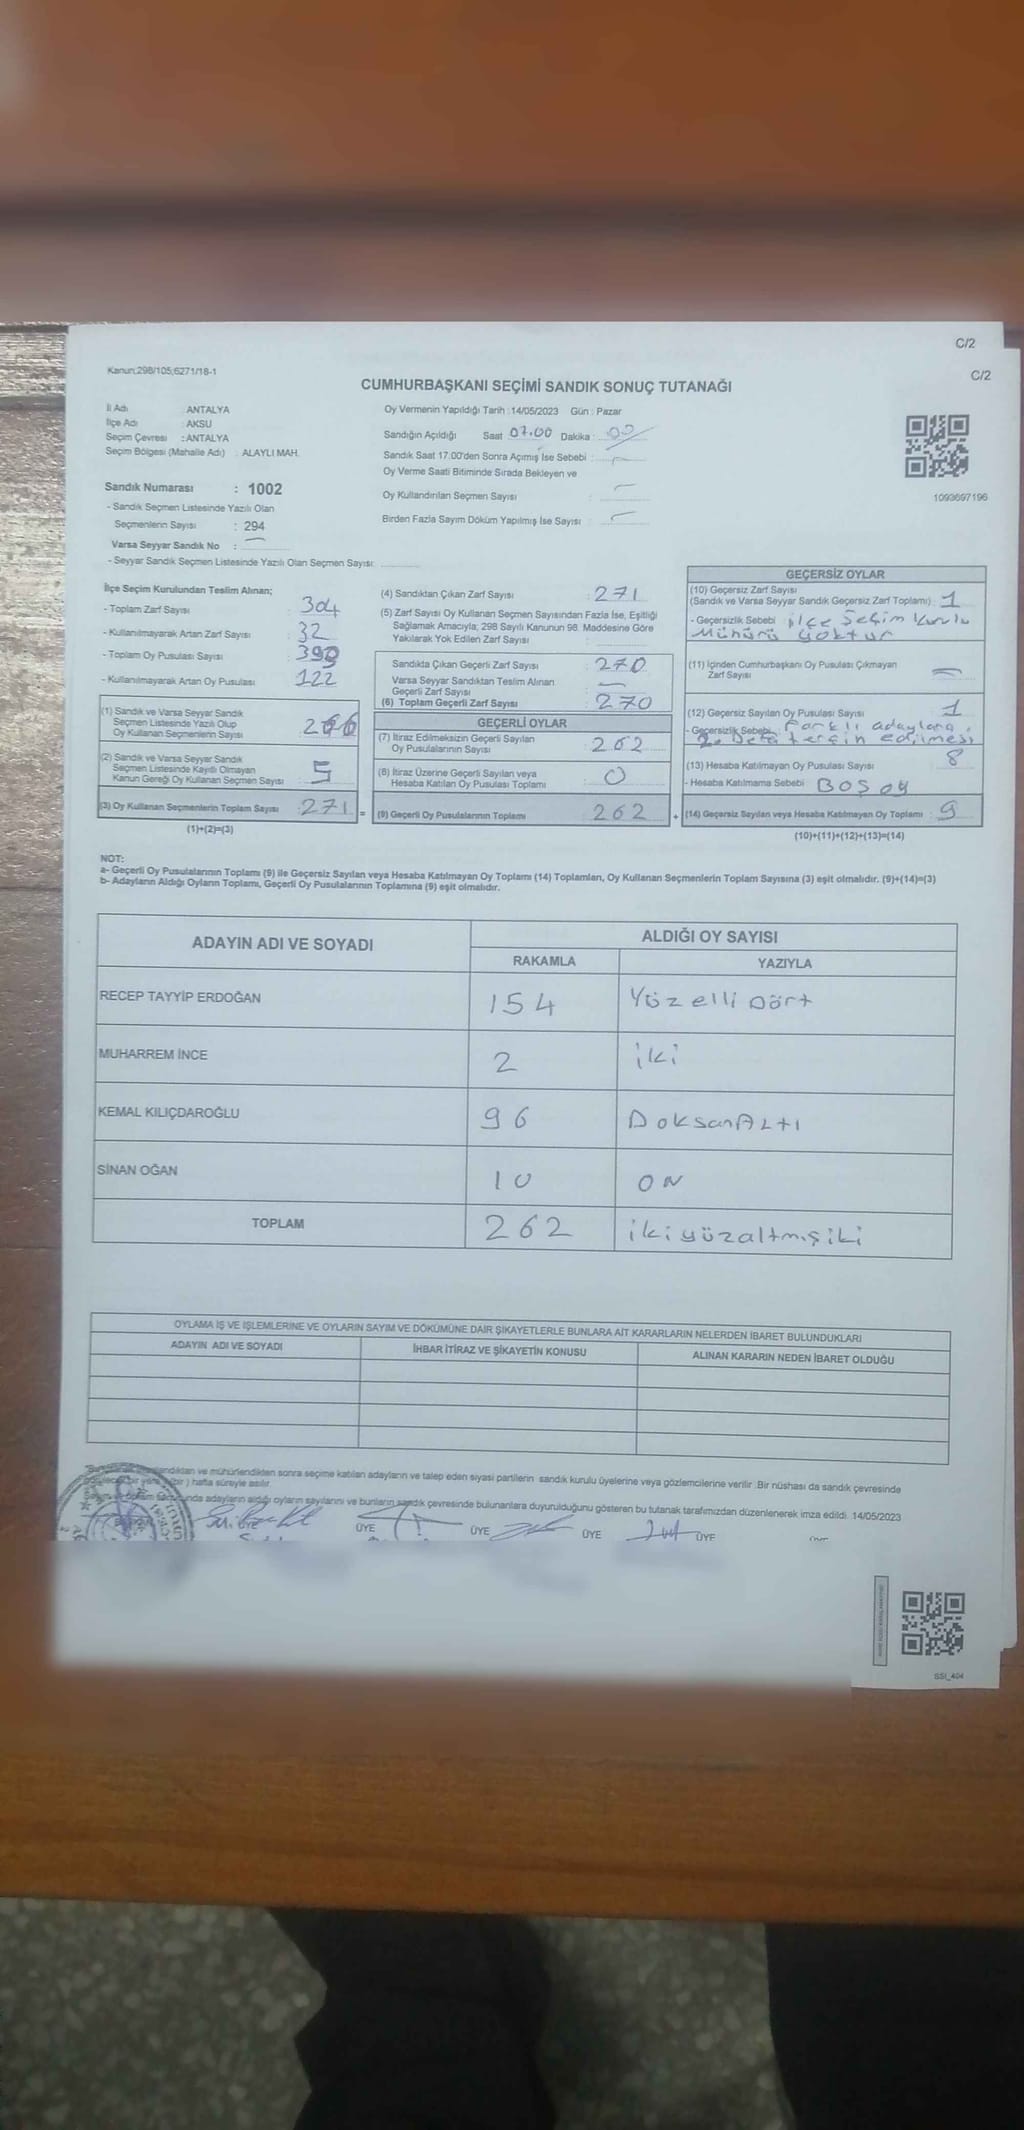 C/2
C/2
Kanun:298/105;6271/18-1
CUMHURBAŞKANI SEÇİMİ SANDIK SONUÇ TUTANAĞI
İl Adı : ANTALYA
İlçe Adı : AKSU
Seçim Çevresi : ANTALYA
Seçim Bölgesi (Mahalle Adı) : ALAYLI MAH.
Sandık Numarası : 1002
- Sandık Seçmen Listesinde Yazılı Olan
Seçmenlerin Sayısı : 294
Varsa Seyyar Sandık No :
- Seyyar Sandık Seçmen Listesinde Yazılı Olan Seçmen Sayısı:
Oy Vermenin Yapıldığı Tarih : 14/05/2023 Gün : Pazar
Sandığın Açıldığı Saat 07.00 Dakika : 00
Sandık Saat 17:00'den Sonra Açımış İse Sebebi :
Oy Verme Saati Bitiminde Sırada Bekleyen ve
Oy Kullandırılan Seçmen Sayısı :
Birden Fazla Sayım Döküm Yapılmış İse Sayısı :
1093697196
İlçe Seçim Kurulundan Teslim Alınan;
- Toplam Zarf Sayısı : 304
- Kullanılmayarak Artan Zarf Sayısı : 32
- Toplam Oy Pusulası Sayısı :
- Kullanılmayarak Artan Oy Pusulası : 122
(1) Sandık ve Varsa Seyyar Sandık
Seçmen Listesinde Yazılı Olup
Oy Kullanan Seçmenlerin Sayısı : 266
(2) Sandık ve Varsa Seyyar Sandık
Seçmen Listesinde Kayıtlı Olmayan
Kanun Gereği Oy Kullanan Seçmen Sayısı : 5
(3) Oy Kullanan Seçmenlerin Toplam Sayısı : 271
(1)+(2)=(3)
(4) Sandıktan Çıkan Zarf Sayısı : 271
(5) Zarf Sayısı Oy Kullanan Seçmen Sayısından Fazla İse, Eşitliği
Sağlamak Amacıyla; 298 Sayılı Kanunun 98. Maddesine Göre
Yakılarak Yok Edilen Zarf Sayısı :
Sandıkta Çıkan Geçerli Zarf Sayısı : 270
Varsa Seyyar Sandıktan Teslim Alınan
Geçerli Zarf Sayısı :
(6) Toplam Geçerli Zarf Sayısı : 270
GEÇERLİ OYLAR
(7) İtiraz Edilmeksizin Geçerli Sayılan
Oy Pusulalarının Sayısı : 262
(8) İtiraz Üzerine Geçerli Sayılan veya
Hesaba Katılan Oy Pusulası Toplamı : 0
= (9) Geçerli Oy Pusulalarının Toplamı : 262
GEÇERSİZ OYLAR
(10) Geçersiz Zarf Sayısı
(Sandık ve Varsa Seyyar Sandık Geçersiz Zarf Toplamı) : 1
- Geçersizlik Sebebi : ilçe Seçim Kurulu
Mühürü Yoktur
(11) İçinden Cumhurbaşkanı Oy Pusulası Çıkmayan
Zarf Sayısı :
(12) Geçersiz Sayılan Oy Pusulası Sayısı : 1
- Geçersizlik Sebebi : Farklı adaylara
2. Defa tercin edilmesi
(13) Hesaba Katılmayan Oy Pusulası Sayısı : 8
- Hesaba Katılmama Sebebi : BOŞ oy
+ (14) Geçersiz Sayılan veya Hesaba Katılmayan Oy Toplamı : 9
(10)+(11)+(12)+(13)=(14)
NOT:
a- Geçerli Oy Pusulalarının Toplamı (9) ile Geçersiz Sayılan veya Hesaba Katılmayan Oy Toplamı (14) Toplamları, Oy Kullanan Seçmenlerin Toplam Sayısına (3) eşit olmalıdır. (9)+(14)=(3)
b- Adayların Aldığı Oyların Toplamı, Geçerli Oy Pusulalarının Toplamına (9) eşit olmalıdır.
ADAYIN ADI VE SOYADI ALDIĞI OY SAYISI
RAKAMLA YAZIYLA
RECEP TAYYİP ERDOĞAN 154 Yüz elli Dört
MUHARREM İNCE 2 iki
KEMAL KILIÇDAROĞLU 96 DoksanAltı
SİNAN OĞAN 10 ON
TOPLAM 262 iki yüzaltmışiki
OYLAMA İŞ VE İŞLEMLERİNE VE OYLARIN SAYIM VE DÖKÜMÜNE DAİR ŞİKAYETLERLE BUNLARA AİT KARARLARIN NELERDEN İBARET BULUNDUKLARI
ADAYIN ADI VE SOYADI İHBAR İTİRAZ VE ŞİKAYETİN KONUSU ALINAN KARARIN NEDEN İBARET OLDUĞU
ve mühürlendikten sonra seçime katılan adayların ve talep eden siyasi partilerin sandık kurulu üyelerine veya gözlemcilerine verilir. Bir nüshası da sandık çevresinde
bir yere (bir) hafta süreyle asılır.
adayların aldığı oyların sayılarını ve bunların sandık çevresinde bulunanlara duyurulduğunu gösteren bu tutanak tarafımızdan düzenlenerek imza edildi. 14/05/2023
ÜYE ÜYE ÜYE ÜYE ÜYE
SSI_404